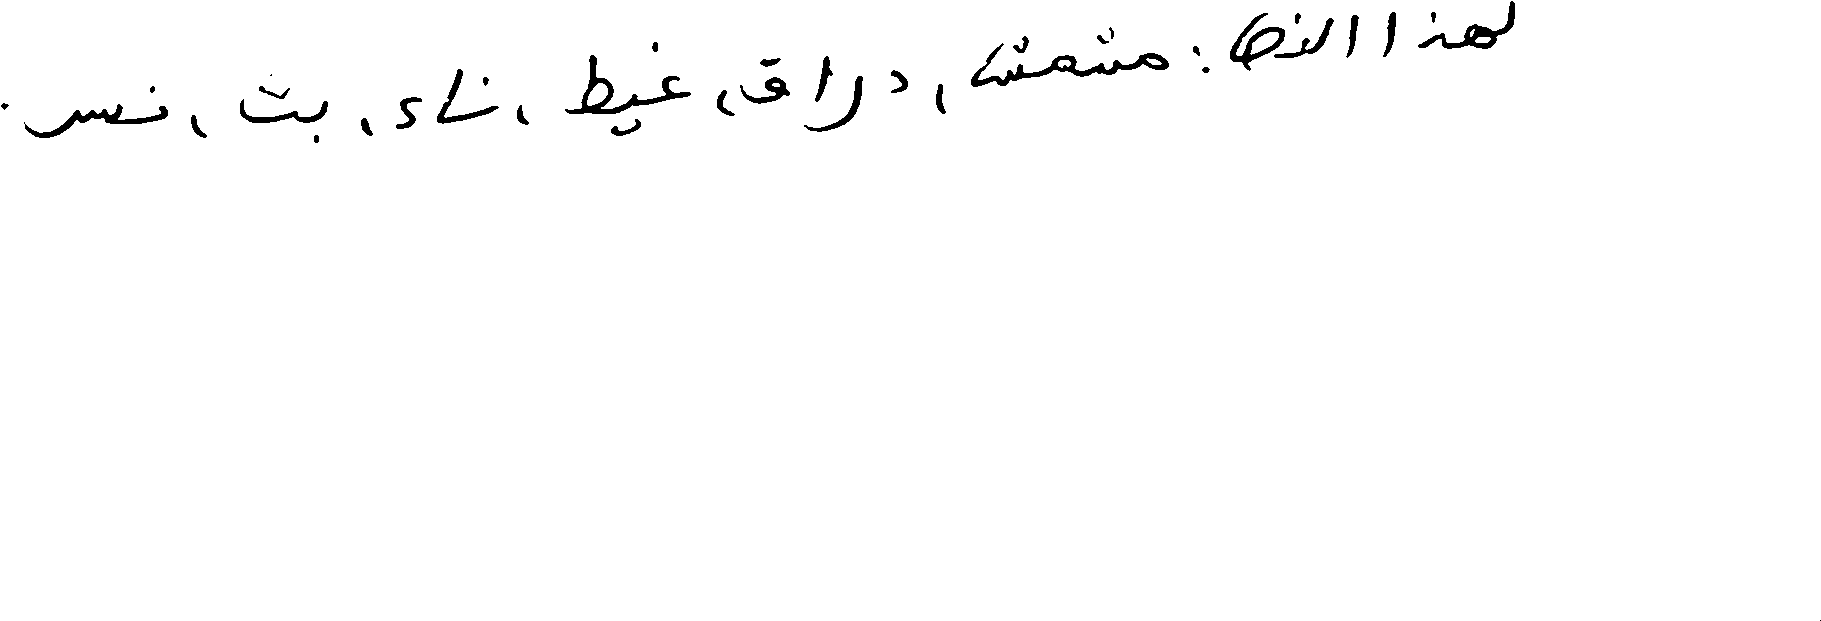 لهذا النص: مشمش، دراق، غيط، ناء، بث، نسر.